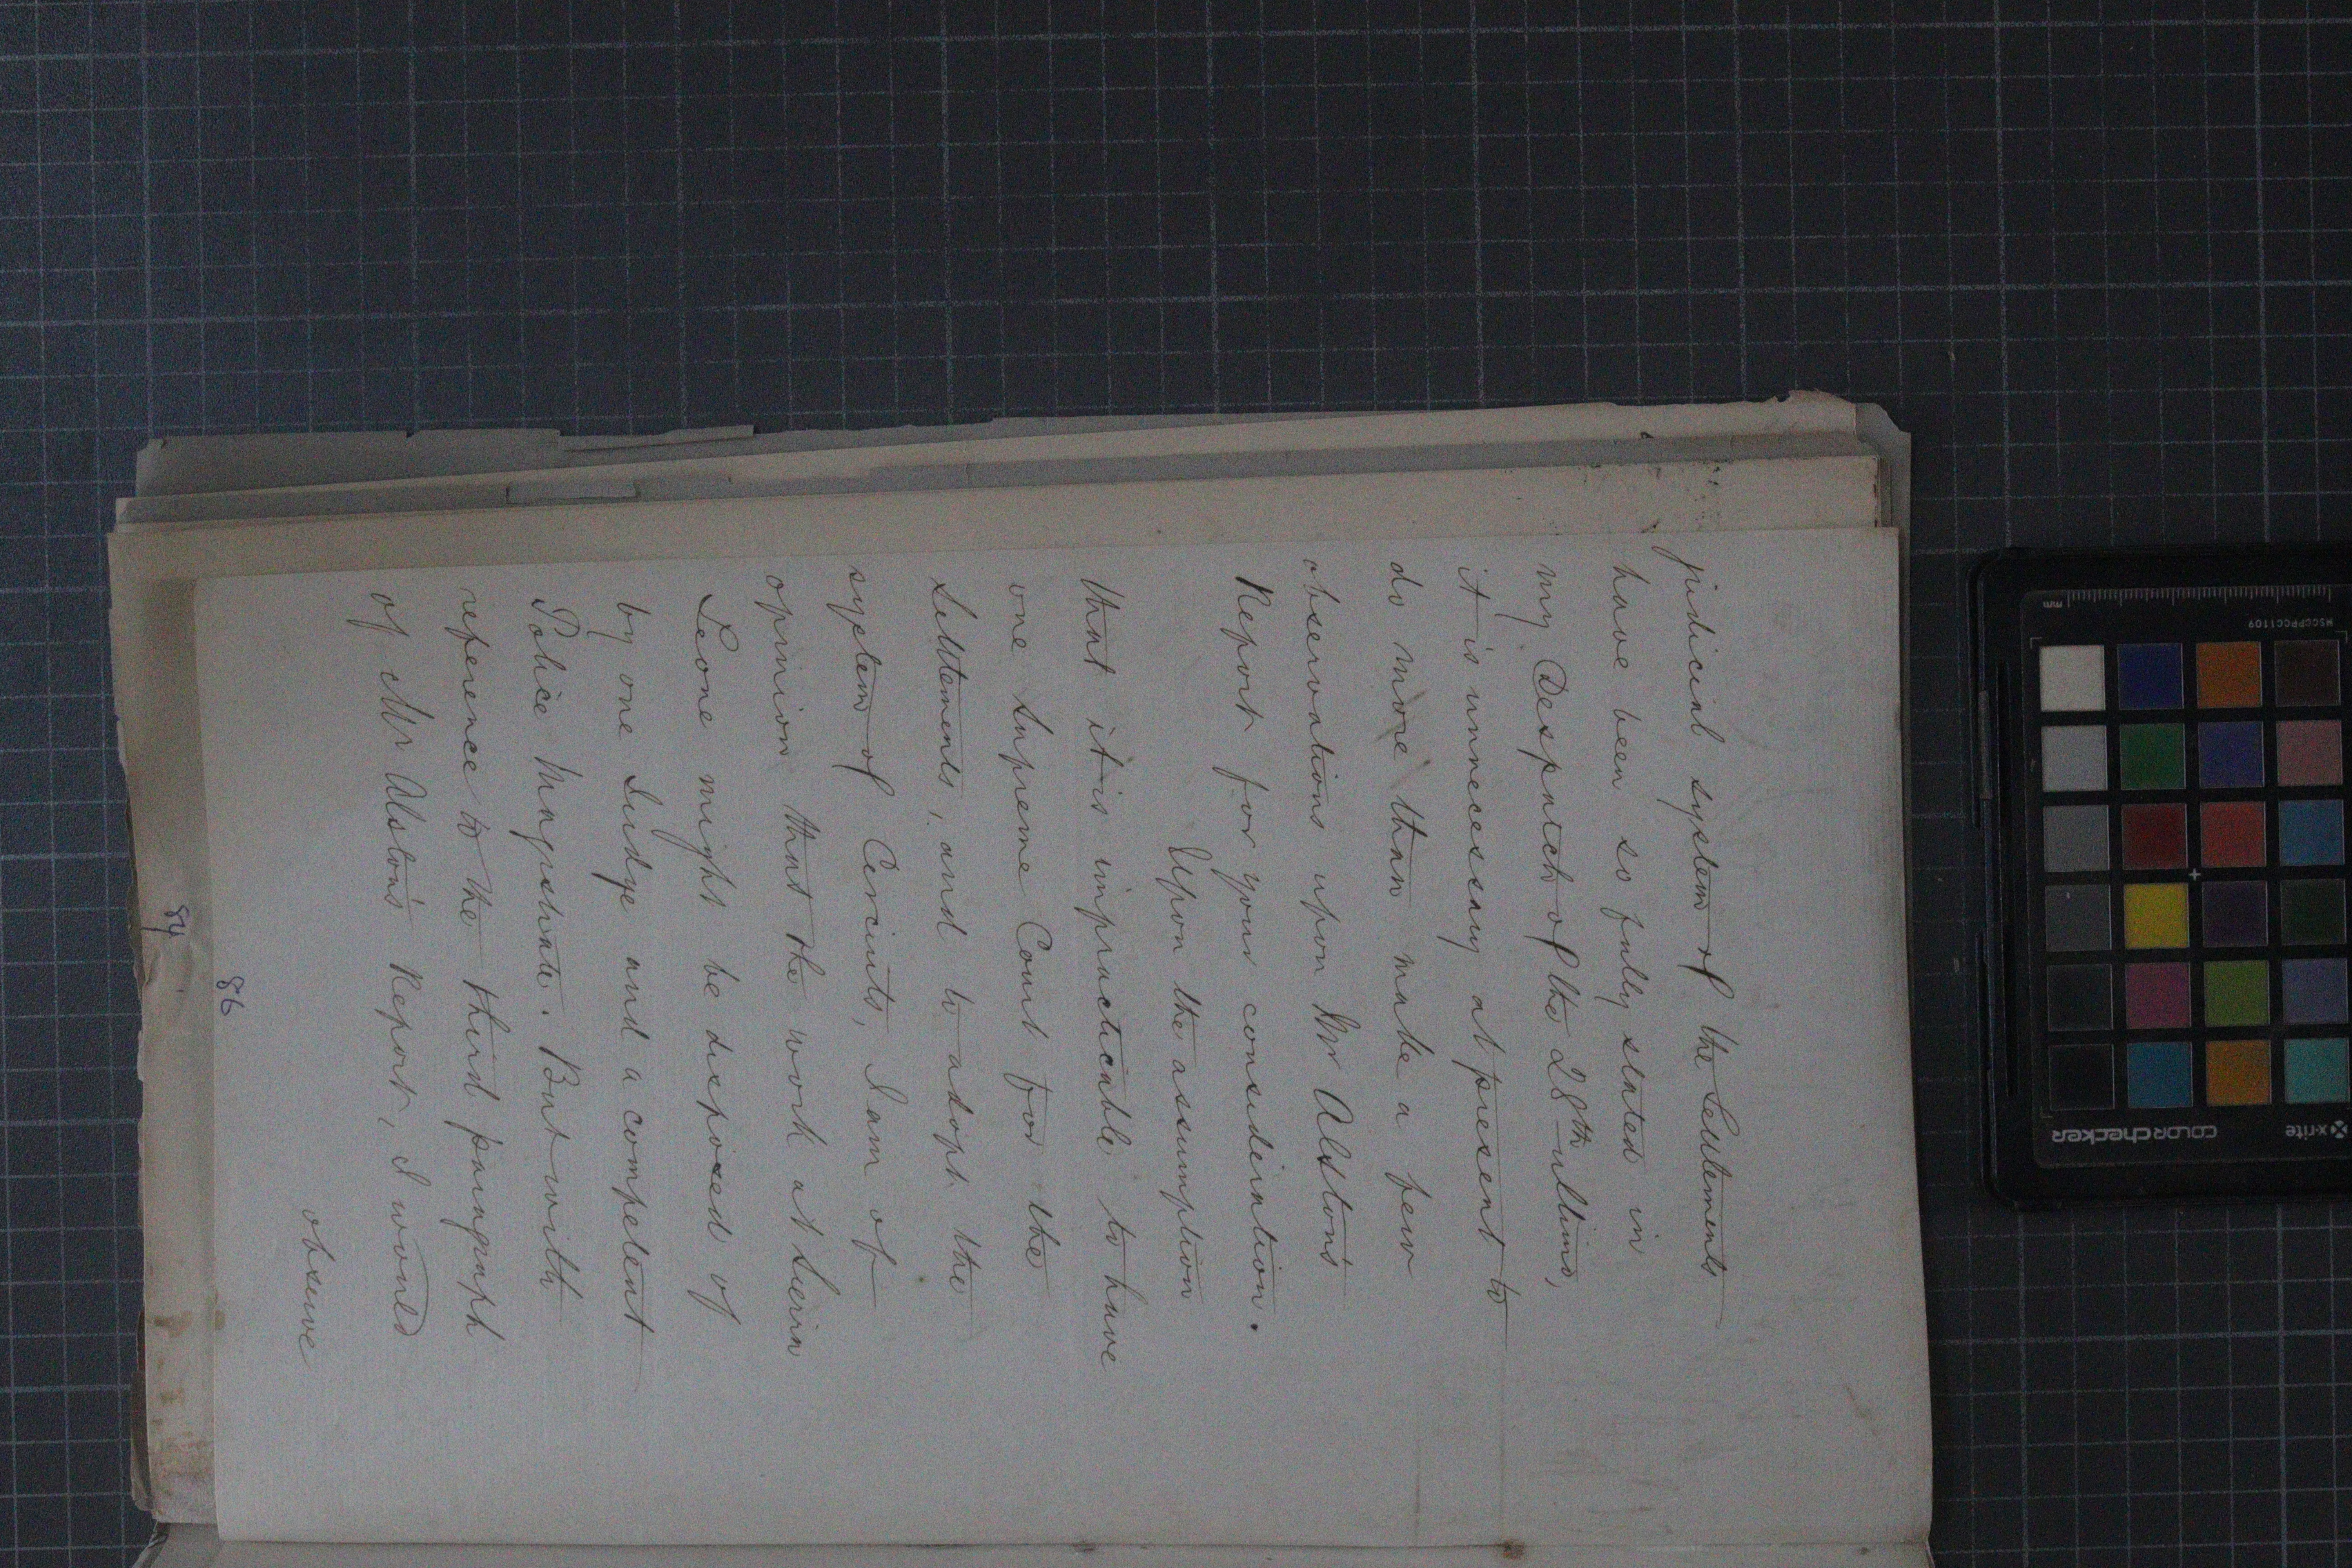 judicial system of the Settlements
have been so fully stated in
my Despatch of the 28th ultimo,
it is unnecessary at present to
do more than make a few
observations upon Mr Alston's
Report for your consideration.
Upon the assumption
that it is impracticable to have
one Supreme Court for the
Settlements, and to adopt the
system of Circuits, I am of
opinion that the work at Sierra
Leone might be disposed of
by one Judge and a competent
Police Magistrate. But with
reference to the third paragraph
of Mr Alston's Report, I would
observe
86
84
mm
MSCCPPCC1109
x-rite
colorchecker